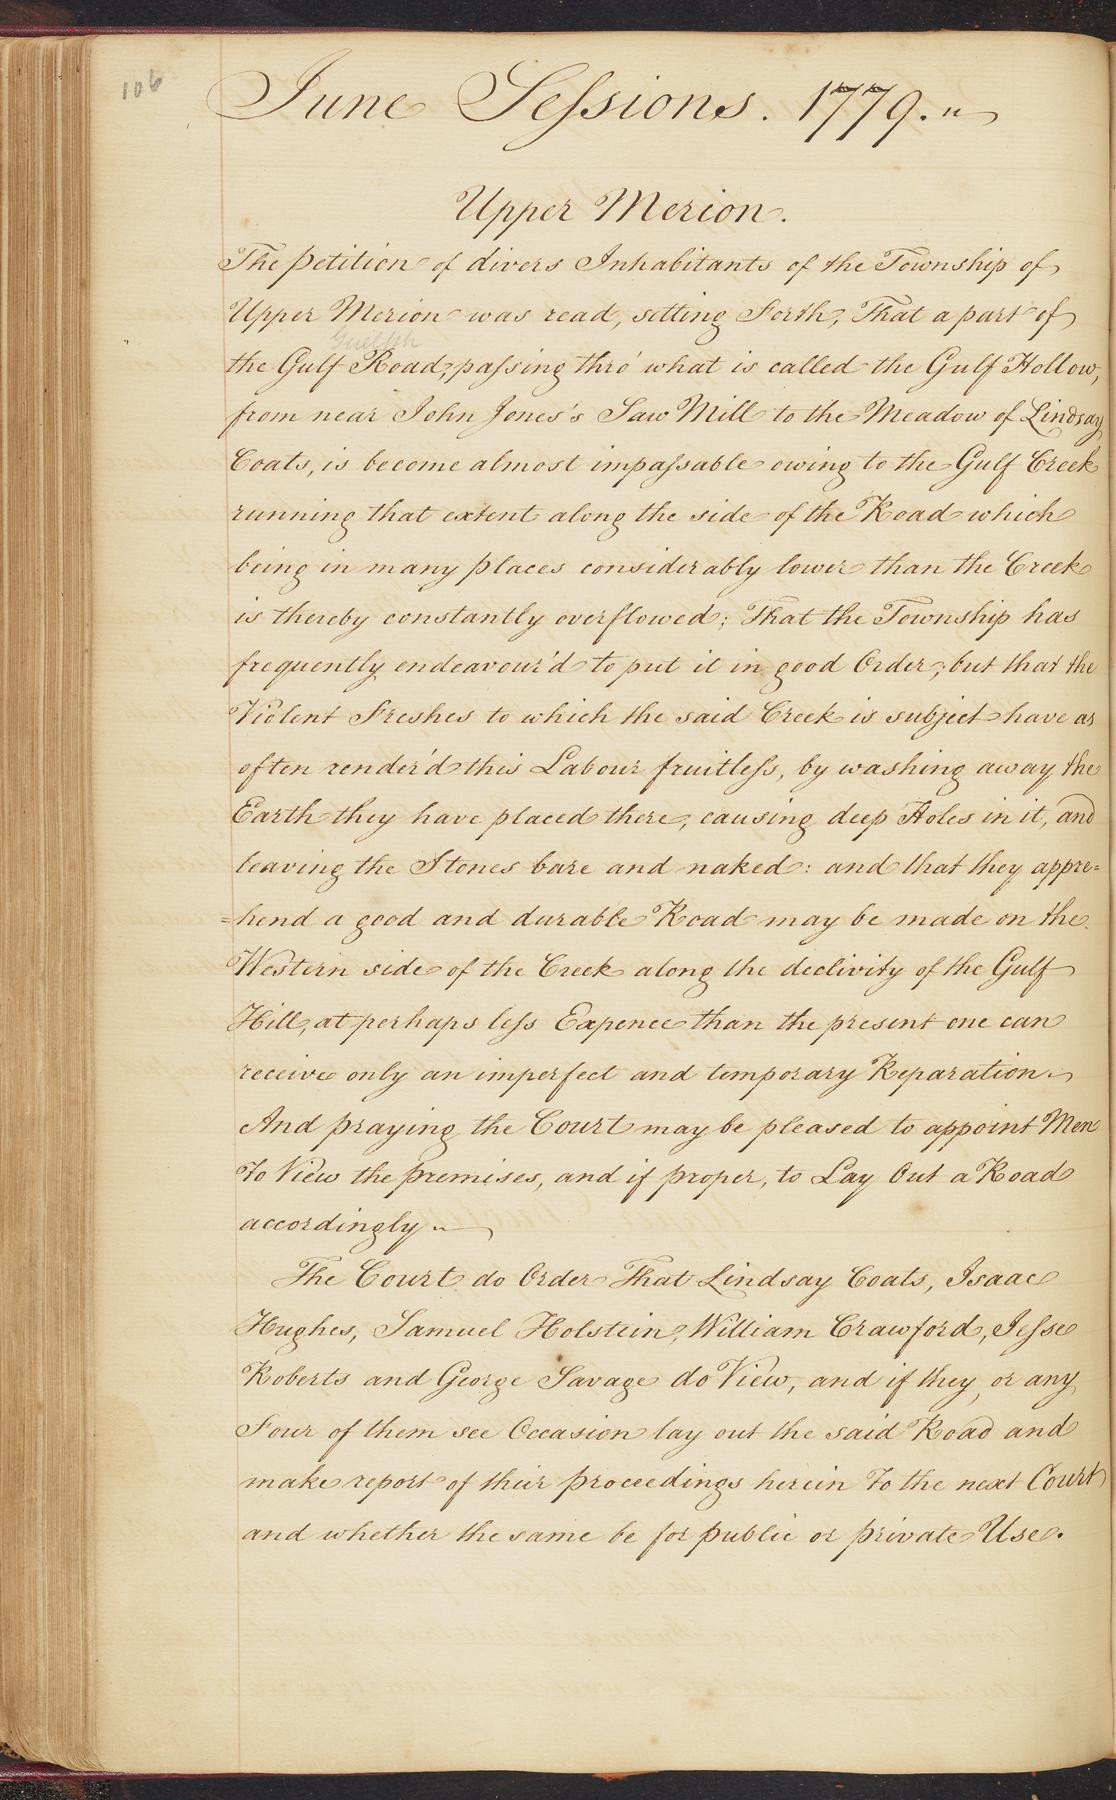 106
June Sessions. 1779.
Upper Merion.
The petition of divers Inhabitants of the Township of
Upper Merion was read, setting Forth, That a part of
the Gulf Road, passing thro' what is called the Gulf Hollow,
from near John Jones's Saw Mill to the Meadow of Lindsay
Coats, is become almost impassable owing to the Gulf Creek
running that extent along the side of the Road which
being in many places considerably lower than the Creek
is thereby constantly overflowed; That the Township has
frequently endeavour'd to put it in good Order; but that the
Violent Freshes to which the said Creek is subject have as
often render'd this Labour fruitless, by washing away the
Earth they have placed there, causing deep Holes in it, and
leaving the Stones bare and naked: and that they appre=
=hend a good and durable Road may be made on the
Western side of the Creek along the declivity of the Gulf
Hill, at perhaps less Expence than the present one can
receive only an imperfect and temporary Reparation
And praying the Court may be pleased to appoint Men
To View the premises, and if proper, to Lay Out a Road
accordingly
The Court do Order That Lindsay Coats, Isaac
Hughes, Samuel Holstein, William Crawford, Jesse
Roberts and George Savage do View, and if they, or any
Four of them see Occasion lay out the said Road and
make report of their proceedings herein To the next Court
and whether the same be for public or private Use.